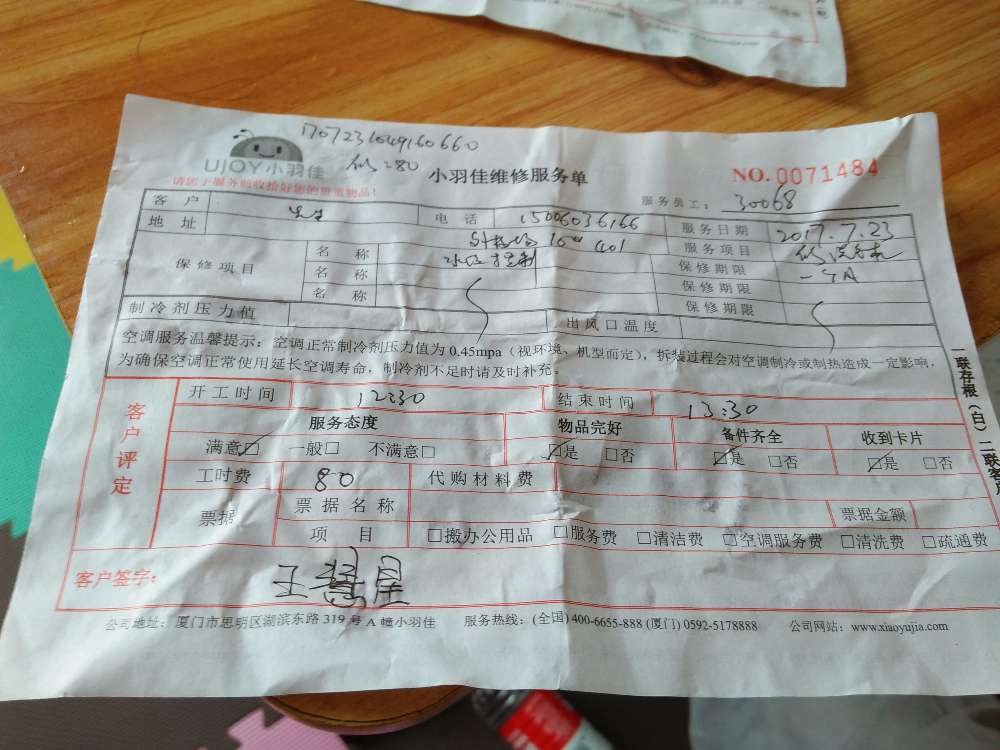 1707231049160660
UJOY小羽佳 小羽佳维修服务单 NO.0071484
请您于服务前收拾好您的贵重物品! 服务员工: 30068
客户 先生 电话 15006036166 服务日期 2017.7.23
地址 401 服务项目
保修项目 名称 水位控制 保修期限 一个月
名称 保修期限
名称 保修期限
制冷剂压力值 出风口温度
空调服务温馨提示:空调正常制冷剂压力值为0.45mpa(视环境、机型而定),拆装过程会对空调制冷或制热造成一定影响,
为确保空调正常使用延长空调寿命,制冷剂不足时请及时补充。
客户评定 开工时间 12:30 结束时间 13:30
服务态度 物品完好 备件齐全 收到卡片
满意☑ 一般□ 不满意□ ☑是 □否 ☑是 □否 ☑是 □否
工时费 80 代购材料费
票据 票据名称 票据金额
项目 □搬办公用品 □服务费 □清洁费 □空调服务费 □清洗费 □疏通费
客户签字: 王慧星
公司地址:厦门市思明区湖滨东路319号A幢小羽佳 服务热线:(全国)400-6655-888(厦门)0592-5178888 公司网站:www.xiaoyujia.com
一联存根(白)二联客户